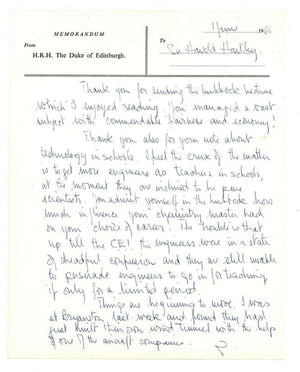 MEMORANDUM
From
H.R.H. The Duke of Edinburgh.
To
Sir Harold Hartley
1 June 1966
Thank you for sending the Lubbock lecture
which I enjoyed reading. You managed a vast
subject with commendable fairness and economy!
Thank you also for your note about
technology in schools. I feel the crux of the matter
is to get more engineers as teachers in schools,
at the moment they are inclined to be pure
scientists. You admit yourself in the Lubbock how
much influence your chemistry master had
on your choice of career! The trouble is that
up till the CEI the engineers were in a state
of dreadful confusion and they are still unable
to persuade engineers to go in for teaching
if only for a limited period.
Things are beginning to move. I was
at Bryanston last week and found they had
just built their own wind tunnel with the help
of one of the aircraft companies.
P